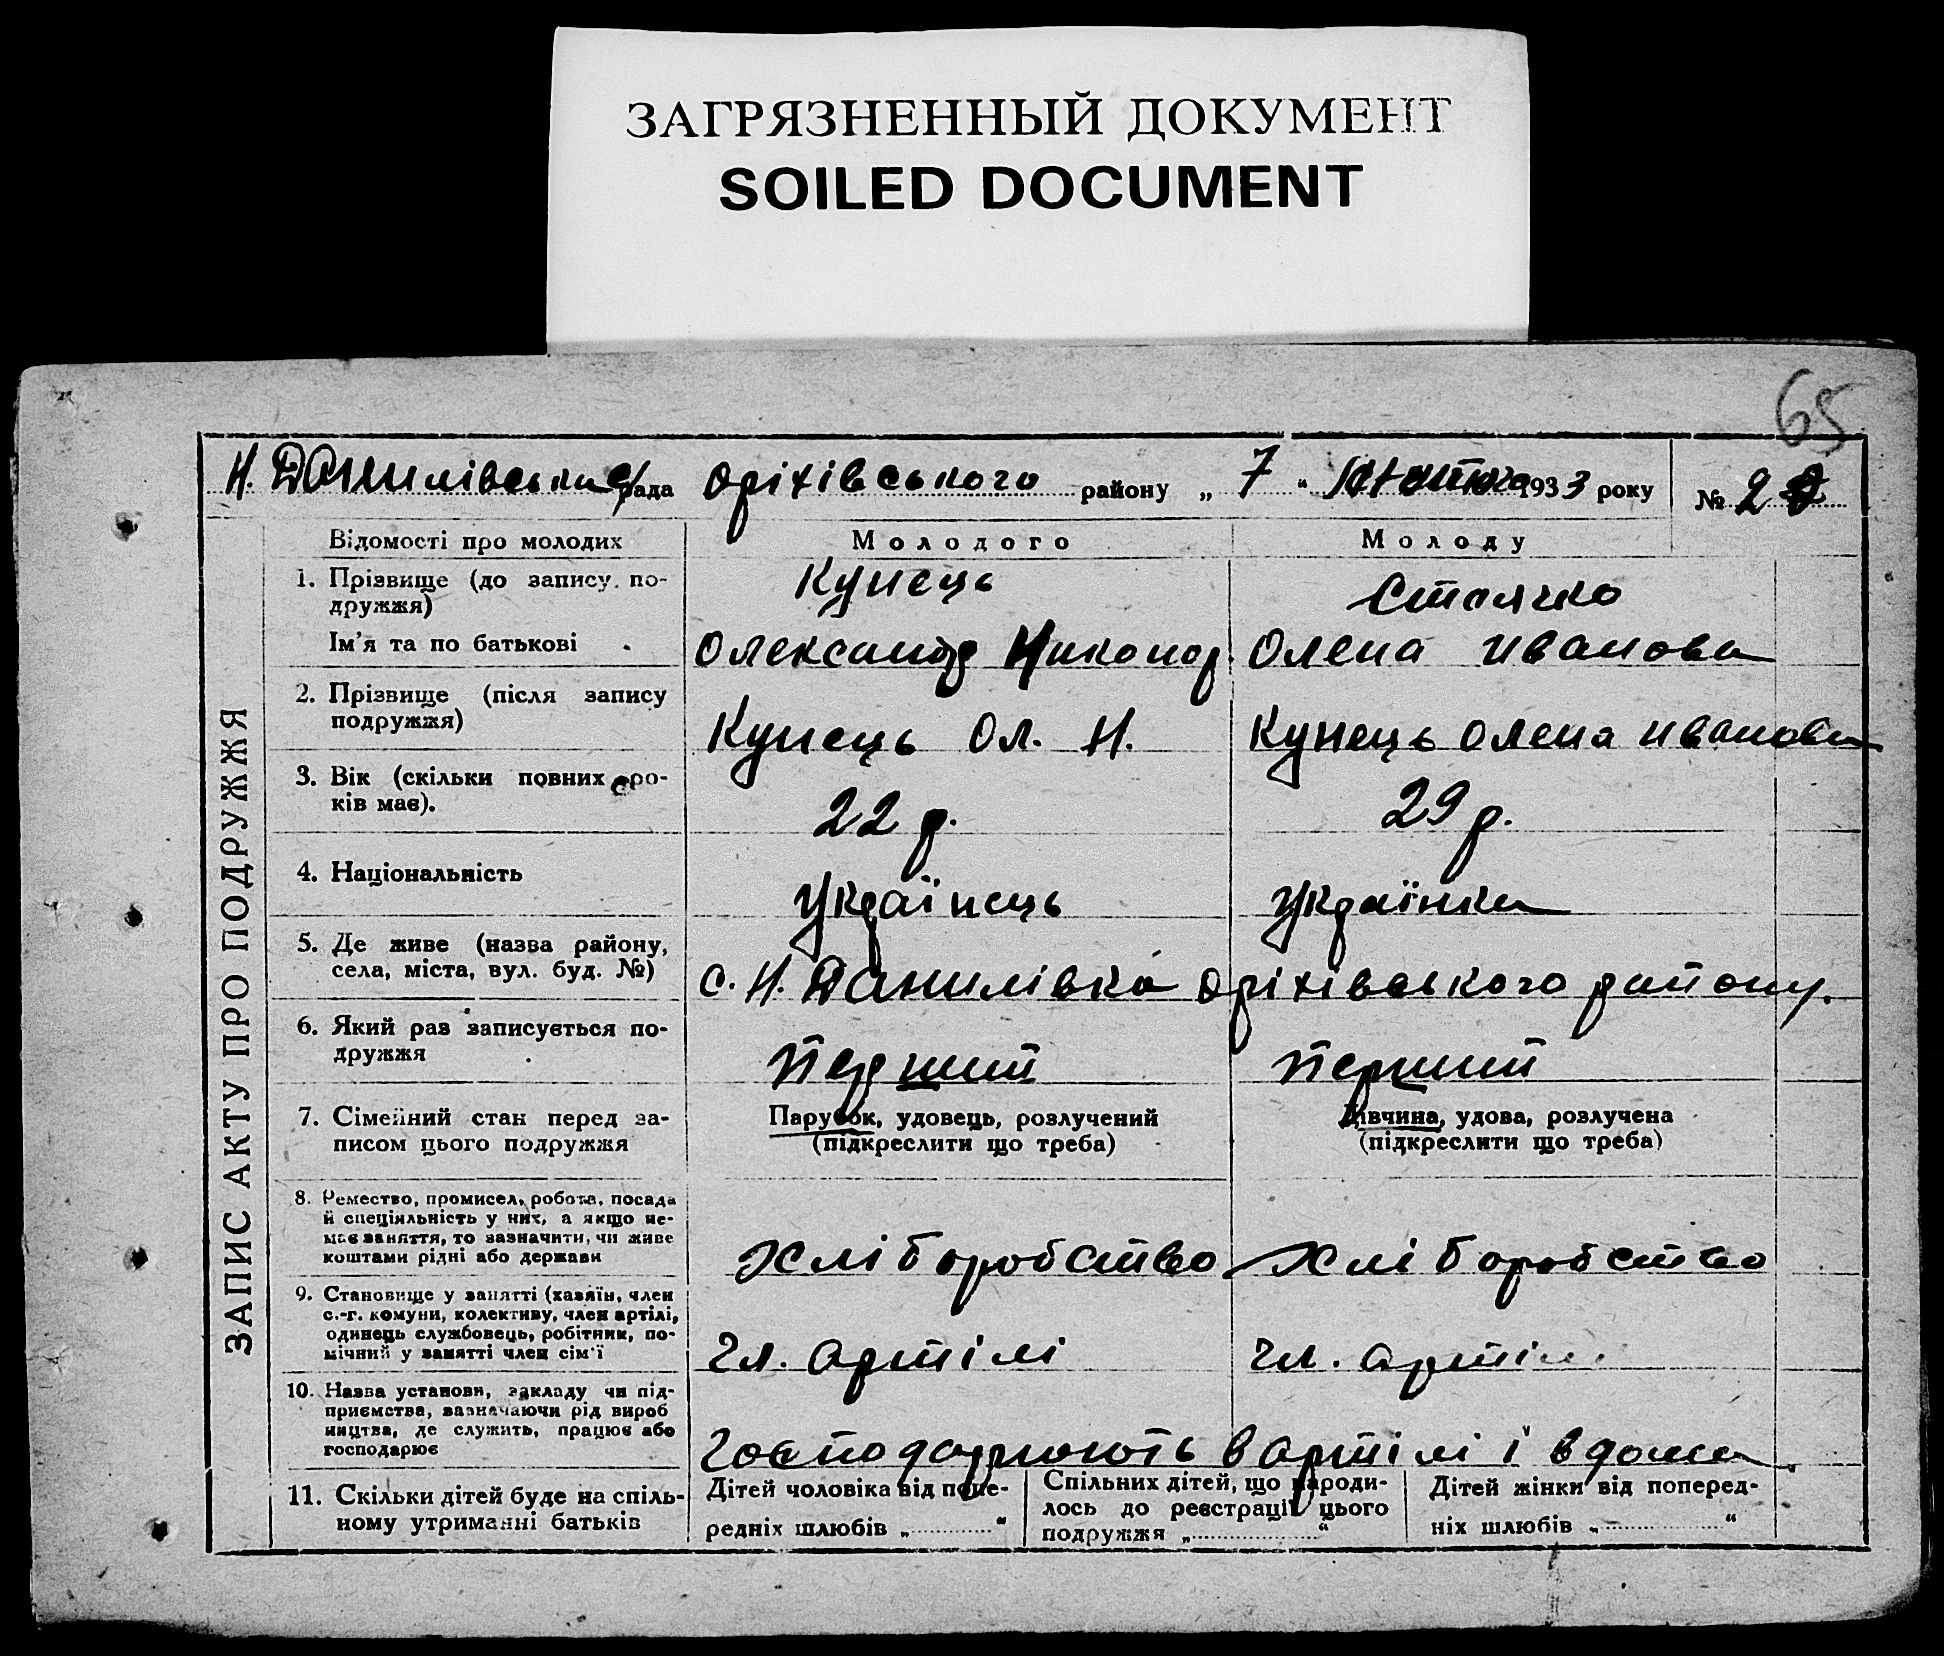 ЗАГРЯЗНЕННЫЙ ДОКУМЕНТ
SOILED DOCUMENT
65
Н. Данилівська с/рада Оріхівського району „ 7 “ 1933 року № 2
ЗАПИС АКТУ ПРО ПОДРУЖЖЯ
Відомості про молодих Молодого Молоду
1. Прізвище (до запису по-
дружжя) Кунець Стоячко
Ім'я та по батькові Олександр Никонор. Олена Иванова
2. Прізвище (після запису
подружжя) Кунець Ол. Н. Кунець Олена Иванова
3. Вік (скільки повних ро-
ків має). 22 р. 29 р.
4. Національність Українець Українка
5. Де живе (назва району,
села, міста, вул. буд. №) с. Н. Данилівка Оріхівського району.
6. Який раз записується по-
дружжя Перший Перший
7. Сімейний стан перед за-
писом цього подружжя
Парубок, удовець, розлучений
(підкреслити що треба)
Дівчина, удова, розлучена
(підкреслити що треба)
8. Ремество, промисел, робота, посада
й спеціяльність у них, а якщо не-
має заняття, то зазначити, чи живе
коштами рідні або держави Хліборобство Хліборобство
9. Становище у занятті (хазяїн, член
с.-г. комуни, колективу, член артілі,
одинець службовець, робітник, по-
мічний у занятті член сім'ї Чл. артілі Чл. артілі
10. Назва установи, закладу чи під-
приємства, зазначаючи рід вироб
ництва, де служить, працює або
господарює Господарюють в артілі і вдома.
11. Скільки дітей буде на спіль-
ному утриманні батьків
Дітей чоловіка від попе-
редніх шлюбів „ “
Спільних дітей, що народи-
лось до реєстрації цього
подружжя „ “
Дітей жінки від поперед-
ніх шлюбів „ “